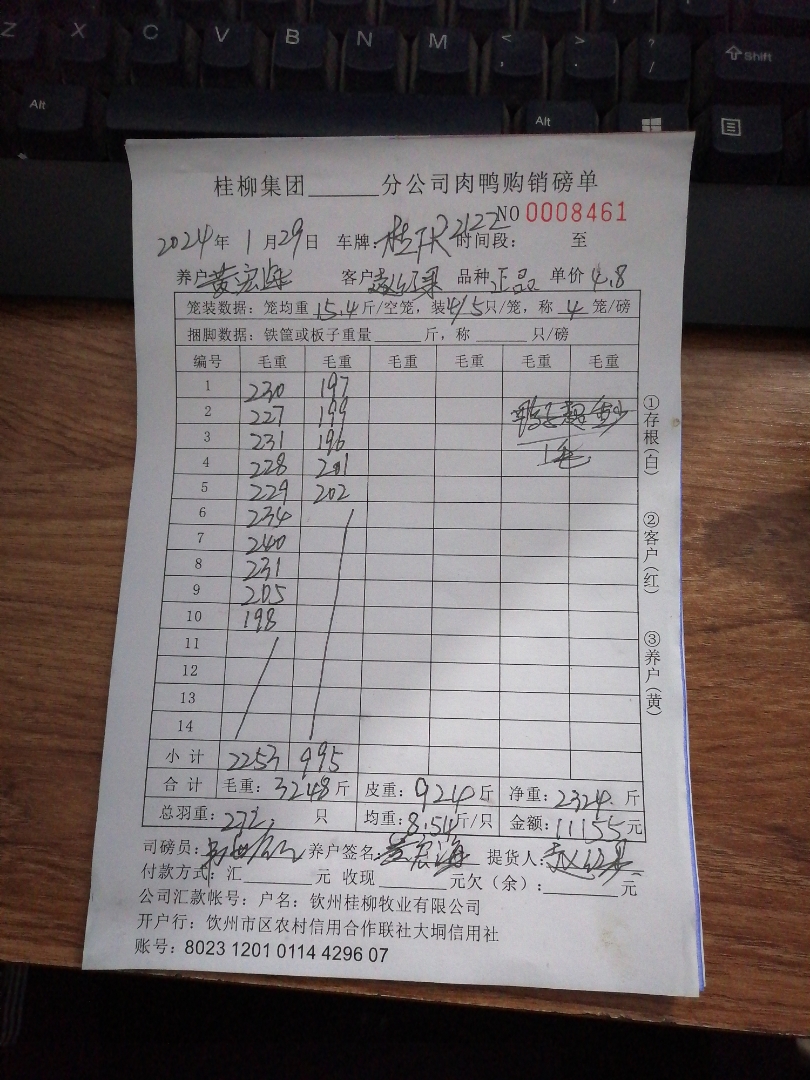 Z X C V B N M < , > . ? / Shift
Alt Alt
桂柳集团______分公司肉鸭购销磅单
NO 0008461
2024年1月29日 车牌: 2122 时间段: 至
养户 黄宏海 客户 赵红果 品种 正品 单价 4.8
笼装数据: 笼均重 15.4 斤/空笼, 装 4/5 只/笼, 称 4 笼/磅
捆脚数据: 铁筐或板子重量______斤, 称______只/磅
编号 毛重 毛重 毛重 毛重 毛重 毛重
1 230 197
2 227 199
3 231 196
4 228 201
5 229 202
6 234
7 240
8 231
9 205
10 198
11
12
13
14
小计 2253 995
合计 毛重: 3248 斤 皮重: 924 斤 净重: 2324. 斤
总羽重: 只 均重: 8.54 斤/只 金额: 11155 元
司磅员: 养户签名: 黄宏海 提货人: 赵红果
付款方式: 汇______元 收现______元欠(余):______元
公司汇款帐号: 户名: 钦州桂柳牧业有限公司
开户行: 钦州市区农村信用合作联社大垌信用社
账号: 8023 1201 0114 4296 07
①存根(白)
②客户(红)
③养户(黄)